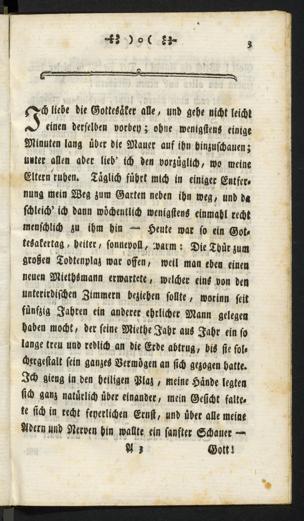 ) o (
3
Ich liebe die Gottesäker alle, und gehe nicht leicht
einen derselben vorbey; ohne wenigstens einige
Minuten lang über die Mauer auf ihn hinzuschauen;
unter allen aber lieb' ich den vorzüglich, wo meine
Eltern ruhen. Täglich führt mich in einiger Entfer-
nung mein Weg zum Garten neben ihn weg, und da
schleich' ich dann wöchentlich wenigstens einmahl recht
menschlich zu ihm hin — Heute war so ein Got-
tesakertag, heiter, sonnevoll, warm: Die Thür zum
großen Todtenplaz war offen, weil man eben einen
neuen Miethsmann erwartete, welcher eins von den
unterirdischen Zimmern beziehen sollte, worinn seit
fünfzig Jahren ein anderer ehrlicher Mann gelegen
haben mocht, der seine Miethe Jahr aus Jahr ein so
lange treu und redlich an die Erde abtrug, bis sie sol-
chergestalt sein ganzes Vermögen an sich gezogen hatte.
Ich gieng in den heiligen Plaz, meine Hände legten
sich ganz natürlich über einander, mein Gesicht falte-
te sich in recht feyerlichen Ernst, und über alle meine
Adern und Nerven hin wallte ein sanfter Schauer —
A 3 Gott!